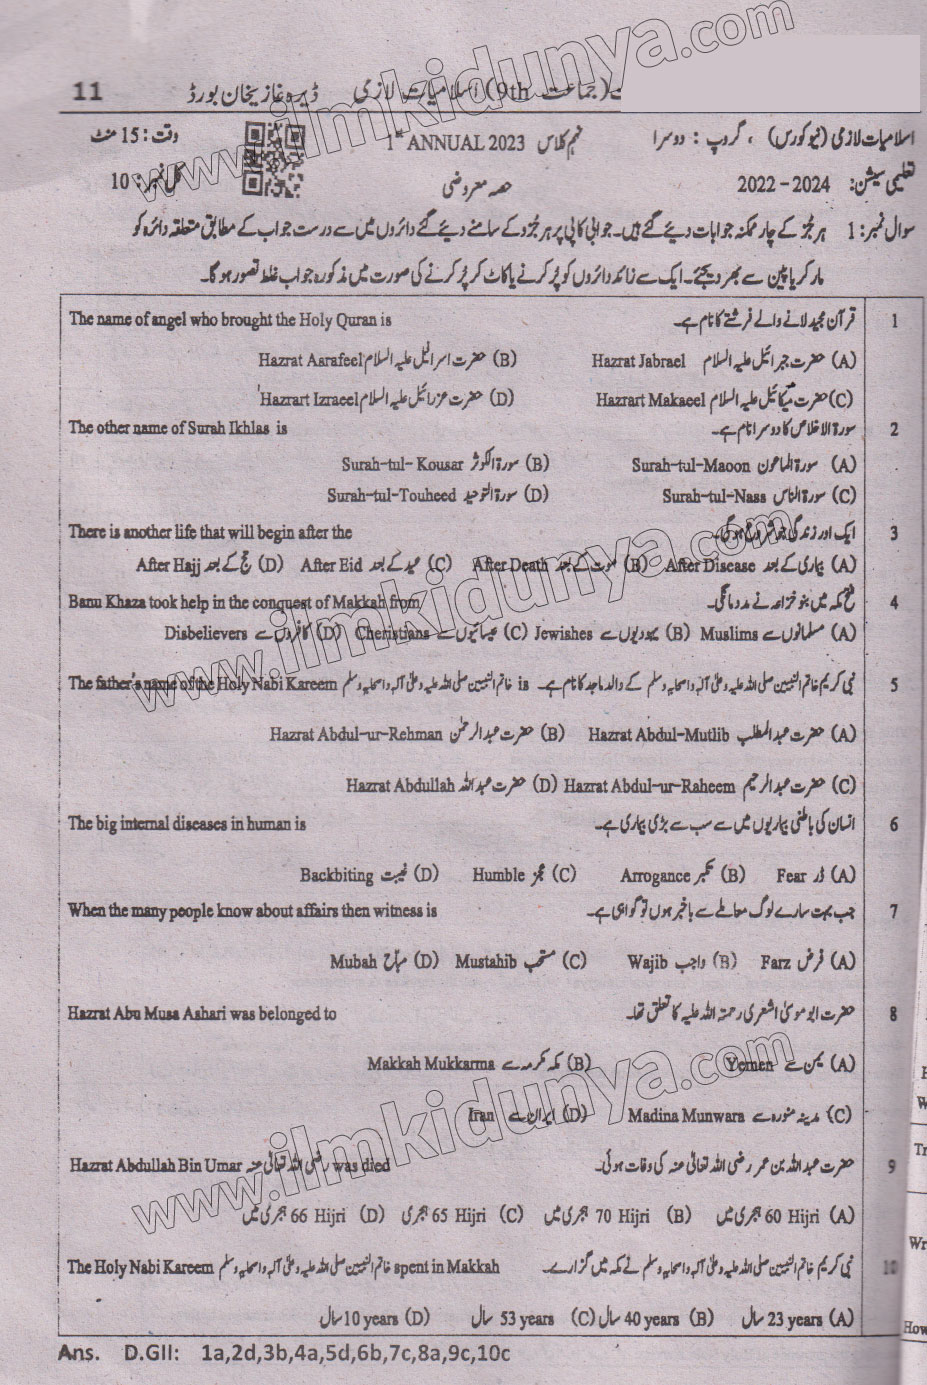 11 ڈیرہ غازیخان بورڈ اسلامیات لازمی (جماعت 9th)
اسلامیات لازمی (نیو کورس) ، گروپ : دوسرا نہم کلاس 1st ANNUAL 2023 وقت : 15 منٹ
تعلیمی سیشن: 2022 - 2024 حصہ معروضی کل نمبر: 10
سوال نمبر: 1 ہر جُز کے چار ممکنہ جوابات دیئے گئے ہیں۔ جوابی کاپی پر ہر جُزو کے سامنے دیئے گئے دائروں میں سے درست جواب کے مطابق متعلقہ دائرہ کو
مارکر یا پین سے بھر دیجئے۔ ایک سے زائد دائروں کو پُر کرنے یا کاٹ کر پُر کرنے کی صورت میں مذکورہ جواب غلط تصور ہو گا۔
The name of angel who brought the Holy Quran is قرآن مجید لانے والے فرشتے کا نام ہے۔ 1
Hazrat Aarafeel حضرت اسرافیل علیہ السلام (B) Hazrat Jabrael حضرت جبرائیل علیہ السلام (A)
Hazrart Izraeel حضرت عزرائیل علیہ السلام (D) Hazrart Makaeel حضرت میکائیل علیہ السلام (C)
The other name of Surah Ikhlas is سورۃ الاخلاص کا دوسرا نام ہے۔ 2
Surah-tul- Kousar سورۃ الکوثر (B) Surah-tul-Maoon سورۃ الماعون (A)
Surah-tul-Touheed سورۃ التوحید (D) Surah-tul-Nass سورۃ الناس (C)
There is another life that will begin after the ایک اور زندگی جو شروع ہو گی۔ 3
After Hajj حج کے بعد (D) After Eid عید کے بعد (C) After Death موت کے بعد (B) After Disease بیماری کے بعد (A)
Banu Khaza took help in the conquest of Makkah from فتح مکہ میں بنو خزاعہ نے مدد مانگی۔ 4
Disbelievers کافروں سے (D) Cheristians عیسائیوں سے (C) Jewishes یہودیوں سے (B) Muslims مسلمانوں سے (A)
The father's name of the Holy Nabi Kareem خاتم النبیین صلی اللہ علیہ وعلیٰ آلہ واصحابہ وسلم is نبی کریم خاتم النبیین صلی اللہ علیہ وعلیٰ آلہ واصحابہ وسلم کے والد ماجد کا نام ہے۔ 5
Hazrat Abdul-ur-Rehman حضرت عبدالرحمٰن (B) Hazrat Abdul-Mutlib حضرت عبدالمطلب (A)
Hazrat Abdullah حضرت عبداللہ (D) Hazrat Abdul-ur-Raheem حضرت عبدالرحیم (C)
The big internal diseases in human is انسان کی باطنی بیماریوں میں سے سب سے بڑی بیماری ہے۔ 6
Backbiting غیبت (D) Humble عجز (C) Arrogance تکبر (B) Fear ڈر (A)
When the many people know about affairs then witness is جب بہت سارے لوگ معاملے سے باخبر ہوں تو گواہی ہے۔ 7
Mubah مباح (D) Mustahib مستحب (C) Wajib واجب (B) Farz فرض (A)
Hazrat Abu Musa Ashari was belonged to حضرت ابو موسیٰ اشعری رحمتہ اللہ علیہ کا تعلق تھا۔ 8
Makkah Mukkarma مکہ مکرمہ سے (B) Yemen یمن سے (A)
Iran ایران سے (D) Madina Munwara مدینہ منورہ سے (C)
Hazrat Abdullah Bin Umar رضی اللہ تعالیٰ عنہ was died حضرت عبداللہ بن عمر رضی اللہ تعالیٰ عنہ کی وفات ہوئی۔ 9
66 Hijri ہجری میں (D) 65 Hijri ہجری (C) 70 Hijri ہجری میں (B) 60 Hijri ہجری میں (A)
The Holy Nabi Kareem خاتم النبیین صلی اللہ علیہ وعلیٰ آلہ واصحابہ وسلم spent in Makkah نبی کریم خاتم النبیین صلی اللہ علیہ وعلیٰ آلہ واصحابہ وسلم نے مکہ میں گزارے۔ 10
10 years سال (D) 53 years سال (C) 40 years سال (B) 23 years سال (A)
Ans. D.GII: 1a,2d,3b,4a,5d,6b,7c,8a,9c,10c
www.ilmkidunya.com
www.ilmkidunya.com
www.ilmkidunya.com